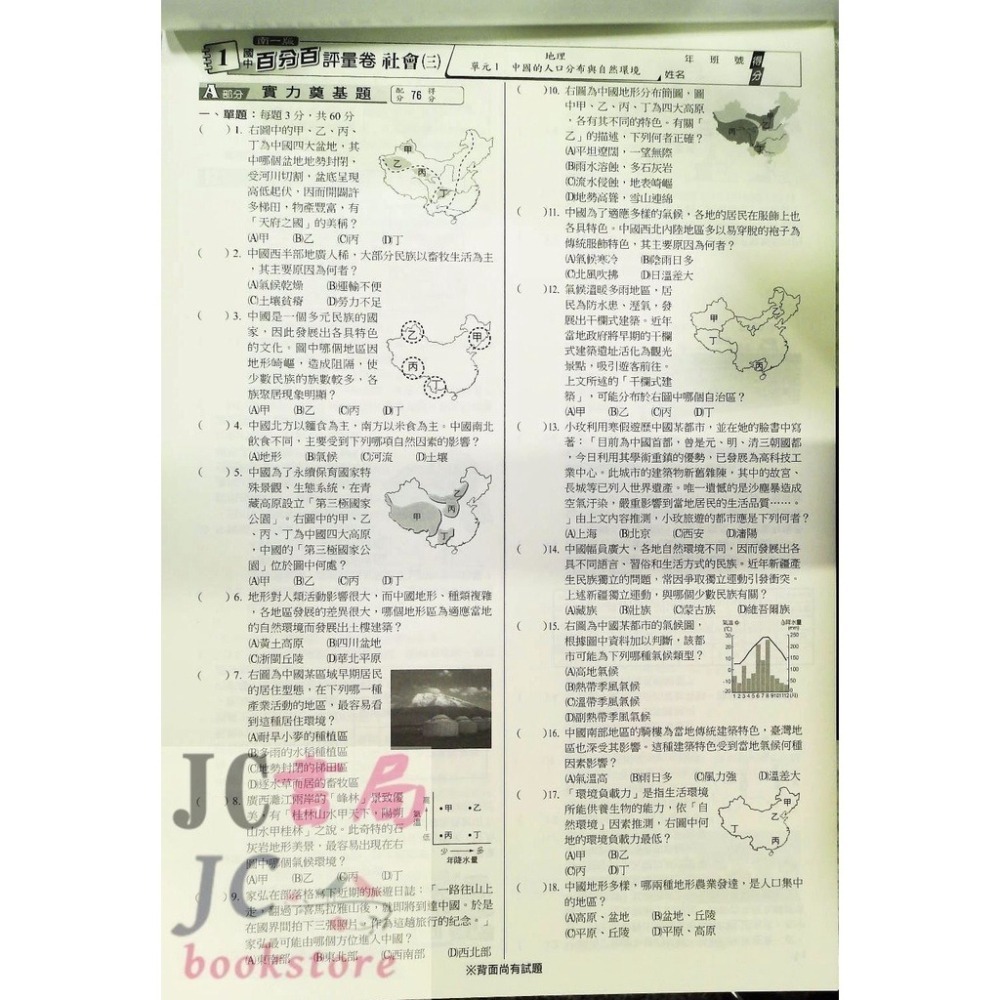 南一版
1 國中 百分百 評量卷 社會(三)
地理
單元1 中國的人口分布與自然環境
年 班 號
姓名
得分
A部分 實力奠基題 配分 76 得分
一、單題：每題3分，共60分
( )1. 右圖中的甲、乙、丙、
丁為中國四大盆地，其
中哪個盆地地勢封閉、
受河川切割，盆底呈現
高低起伏，因而開闢許
多梯田，物產豐富，有
「天府之國」的美稱？
(A)甲 (B)乙 (C)丙 (D)丁
甲
乙
丙
丁
( )2. 中國西半部地廣人稀，大部分民族以畜牧生活為主
，其主要原因為何者？
(A)氣候乾燥 (B)運輸不便
(C)土壤貧瘠 (D)勞力不足
( )3. 中國是一個多元民族的國
家，因此發展出各具特色
的文化。圖中哪個地區因
地形崎嶇，造成阻隔，使
少數民族的族數較多，各
族聚居現象明顯？
(A)甲 (B)乙 (C)丙 (D)丁
乙
甲
丙
丁
( )4. 中國北方以麵食為主，南方以米食為主。中國南北
飲食不同，主要受到下列哪項自然因素的影響？
(A)地形 (B)氣候 (C)河流 (D)土壤
( )5. 中國為了永續保育國家特
殊景觀、生態系統，在青
藏高原設立「第三極國家
公園」。右圖中的甲、乙
、丙、丁為中國四大高原
，中國的「第三極國家公
園」位於圖中何處？
(A)甲 (B)乙 (C)丙 (D)丁
乙
甲
丙
丁
( )6. 地形對人類活動影響很大，而中國地形、種類複雜
，各地區發展的差異很大，哪個地形區為適應當地
的自然環境而發展出土樓建築？
(A)黃土高原 (B)四川盆地
(C)浙閩丘陵 (D)華北平原
( )7. 右圖為中國某區域早期居民
的居住型態，在下列哪一種
產業活動的地區，最容易看
到這種居住環境？
(A)耐旱小麥的種植區
(B)多雨的水稻種植區
(C)地勢封閉的梯田區
(D)逐水草而居的畜牧區
( )8. 廣西灕江兩岸的「峰林」景致優
美，有「桂林山水甲天下，陽朔
山水甲桂林」之說。此奇特的石
灰岩地形美景，最容易出現在右
圖中哪個氣候環境？
(A)甲 (B)乙 (C)丙 (D)丁
高
氣溫
低
甲 乙
丙 丁
少 多
年降水量
( )9. 家弘在部落格寫下近期的旅遊日誌：「一路往山上
走，翻過了喜馬拉雅山後，就即將到達中國。於是
在國界間拍下三張照片，作為這趟旅行的紀念。」
家弘最可能由哪個方位進入中國？
(A)東南部 (B)東北部 (C)西南部 (D)西北部
( )10. 右圖為中國地形分布簡圖，圖
中甲、乙、丙、丁為四大高原
，各有其不同的特色。有關「
乙」的描述，下列何者正確？
(A)平坦遼闊，一望無際
(B)雨水溶蝕，多石灰岩
(C)流水侵蝕，地表崎嶇
(D)地勢高聳，雪山連綿
丙
( )11. 中國為了適應多樣的氣候，各地的居民在服飾上也
各具特色。中國西北內陸地區多以易穿脫的袍子為
傳統服飾特色，其主要原因為何者？
(A)氣候寒冷 (B)陰雨日多
(C)北風吹拂 (D)日溫差大
( )12. 氣候溫暖多雨地區，居
民為防水患、溼氣，發
展出干欄式建築。近年
當地政府將早期的干欄
式建築遺址活化為觀光
景點，吸引遊客前往。
上文所述的「干欄式建
築」，可能分布於右圖中哪個自治區？
(A)甲 (B)乙 (C)丙 (D)丁
甲
乙
丁
丙
( )13. 小玫利用寒假遊歷中國某都市，並在她的臉書中寫
著：「目前為中國首都，曾是元、明、清三朝國都
，今日利用其學術重鎮的優勢，已發展為高科技工
業中心。此城市的建築物新舊雜陳，其中的故宮、
長城等已列入世界遺產。唯一遺憾的是沙塵暴造成
空氣汙染，嚴重影響到當地居民的生活品質……。
」由上文內容推測，小玫旅遊的都市應是下列何者？
(A)上海 (B)北京 (C)西安 (D)瀋陽
( )14. 中國幅員廣大，各地自然環境不同，因而發展出各
具不同語言、習俗和生活方式的民族。近年新疆產
生民族獨立的問題，常因爭取獨立運動引發衝突。
上述新疆獨立運動，與哪個少數民族有關？
(A)藏族 (B)壯族 (C)蒙古族 (D)維吾爾族
( )15. 右圖為中國某都市的氣候圖，
根據圖中資料加以判斷，該都
市可能為下列哪種氣候類型？
(A)高地氣候
(B)熱帶季風氣候
(C)溫帶季風氣候
(D)副熱帶季風氣候
氣溫
降水量
( )16. 中國南部地區的騎樓為當地傳統建築特色，臺灣地
區也深受其影響。這種建築特色受到當地氣候何種
因素影響？
(A)氣溫高 (B)雨日多 (C)風力強 (D)溫差大
( )17. 「環境負載力」是指生活環境
所能供養生物的能力，依「自
然環境」因素推測，右圖中何
地的環境負載力最低？
(A)甲 (B)乙
(C)丙 (D)丁
甲
乙
丁
丙
( )18. 中國地形多樣，哪兩種地形農業發達，是人口集中
的地區？
(A)高原、盆地 (B)盆地、丘陵
(C)平原、丘陵 (D)平原、高原
※背面尚有試題
JC書局
JC
bookstore